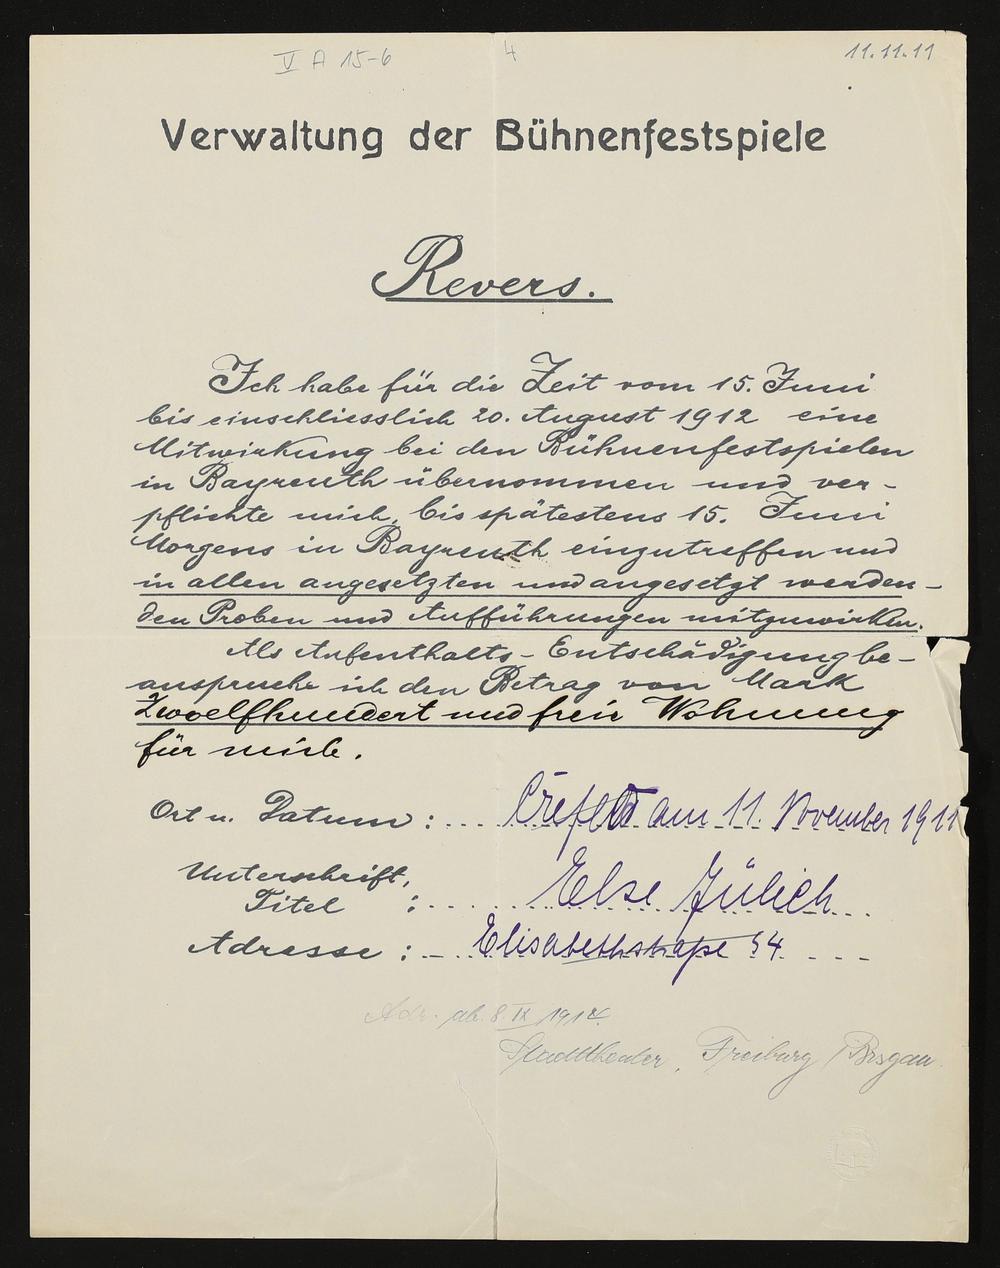 V A 15-6 4 11.11.11
Verwaltung der Bühnenfestspiele
Revers.
Ich habe für die Zeit vom 15. Juni
bis einschliesslich 20. August 1912 eine
Mitwirkung bei den Bühnenfestspielen
in Bayreuth übernommen und ver-
pflichte mich, bis spätestens 15. Juni
Morgens in Bayreuth einzutreffen und
in allen angesetzten und angesetzt werden-
den Proben und Aufführungen mitzuwirken.
Als Aufenthalts-Entschädigung be-
anspruche ich den Betrag von Mark
Zwoelfhundert und freie Wohnung
für mich.
Ort u. Datum: Crefeld am 11. November 1911
Unterschrift, Titel: Else Jülich
Adresse: Elisabethstraße 54
Adr. ab 8. IX 1912.
Stadttheater, Freiburg / Brsgau.